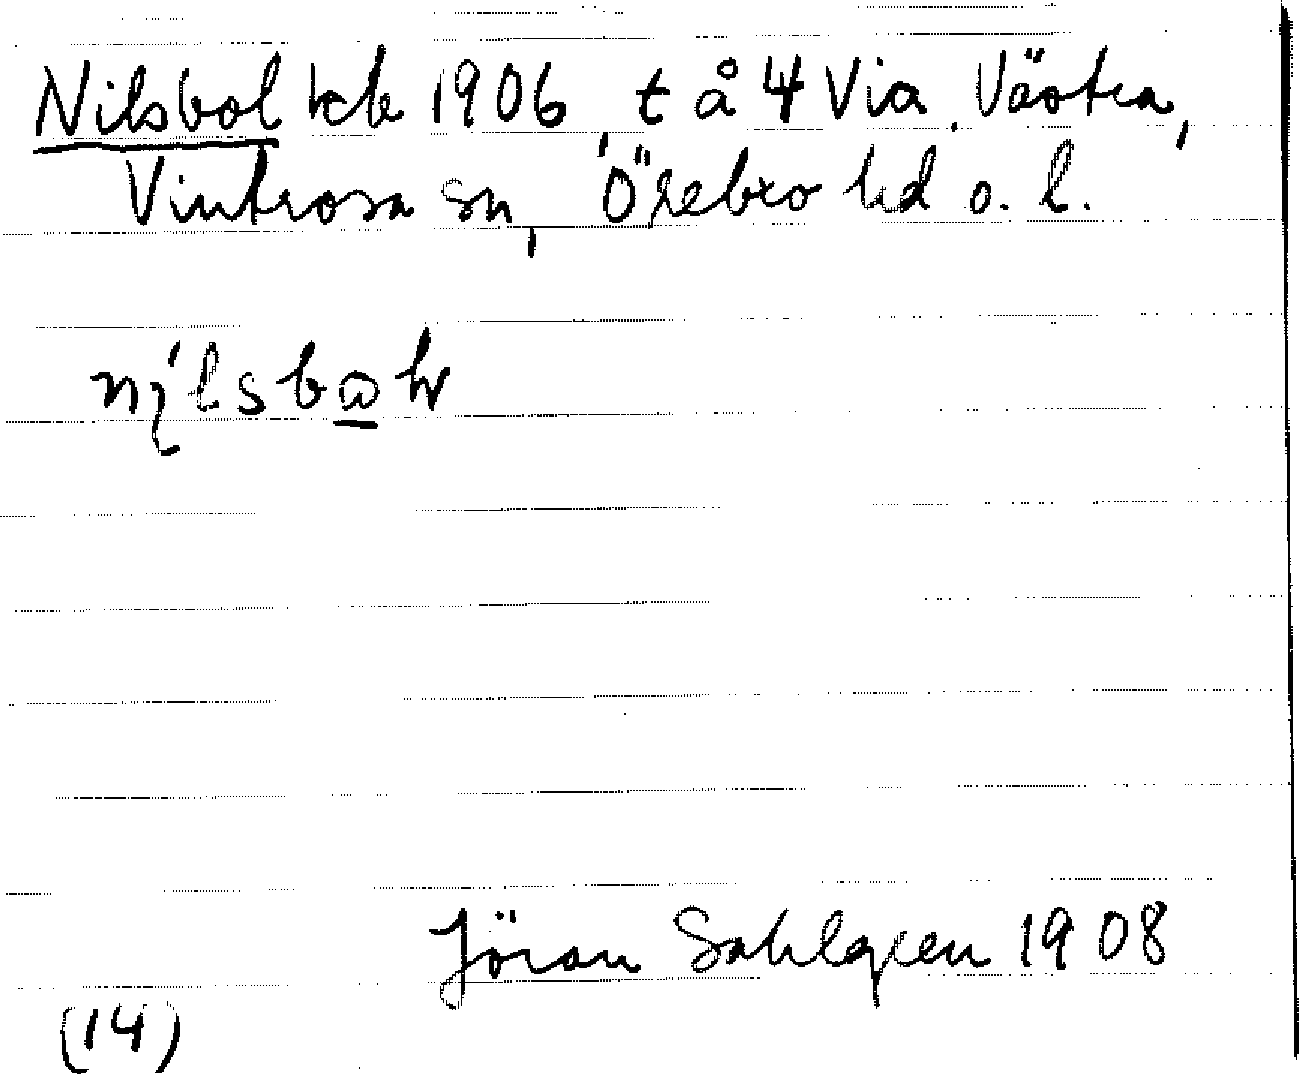 Nilsbol kb 1906, t å 4 Via, Västra,
Vintrosa sn, Örebro hd o. l.
Jöran Sahlgren 1908
(14)